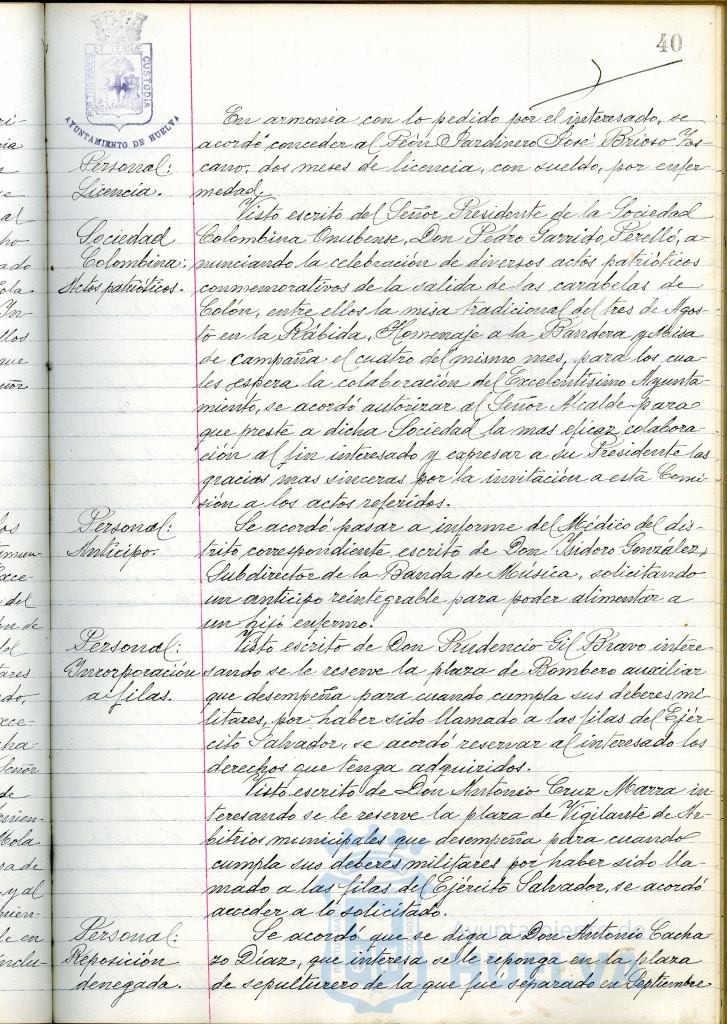 40
PORTUS MARIS ET TERRAE CUSTODIA
AYUNTAMIENTO DE HUELVA
En armonía con lo pedido por el interesado, se
acordó conceder al Peón Jardinero José Brioso Tos-
Personal:
cano, dos meses de licencia, con sueldo, por enfer-
Licencia.
medad.
Visto escrito del Señor Presidente de la Sociedad
Sociedad
Colombina Onubense, Don Pedro Garrido Perelló, a-
Colombina:
nunciando la celebración de diversos actos patrióticos
Actos patrióticos.
conmemorativos de la salida de las carabelas de
Colón, entre ellos la misa tradicional del tres de Agos-
to en la Rábida, Homenaje a la Bandera y Misa
de campaña el cuatro del mismo mes, para los cua-
les espera la colaboración del Excelentísimo Ayunta-
miento, se acordó autorizar al Señor Alcalde para
que preste a dicha Sociedad la mas eficaz colabora-
ción al fin interesado y expresar a su Presidente las
gracias mas sinceras por la invitación a esta Comi-
sión a los actos referidos.
Personal:
Se acordó pasar a informe del Médico del dis-
Anticipo.
trito correspondiente escrito de Don Isidoro González,
Subdirector de la Banda de Música, solicitando
un anticipo reintegrable para poder alimentar a
un hijo enfermo.
Personal:
Visto escrito de Don Prudencio Gil Bravo intere-
Incorporación
sando se le reserve la plaza de Bombero auxiliar
a filas.
que desempeña para cuando cumpla sus deberes mi-
litares, por haber sido llamado a las filas del Ejér-
cito Salvador, se acordó reservar al interesado los
derechos que tenga adquiridos.
Visto escrito de Don Antonio Cruz Marra in-
teresando se le reserve la plaza de Vigilante de Ar-
bitrios municipales que desempeña para cuando
cumpla sus deberes militares por haber sido lla-
mado a las filas del Ejército Salvador, se acordó
acceder a lo solicitado.
Personal:
Se acordó que se diga a Don Antonio Cacha-
Reposición
zo Diaz, que interesa se le reponga en la plaza
denegada.
de sepulturero de la que fué separado en Septiembre
Ayuntamiento de
Huelva